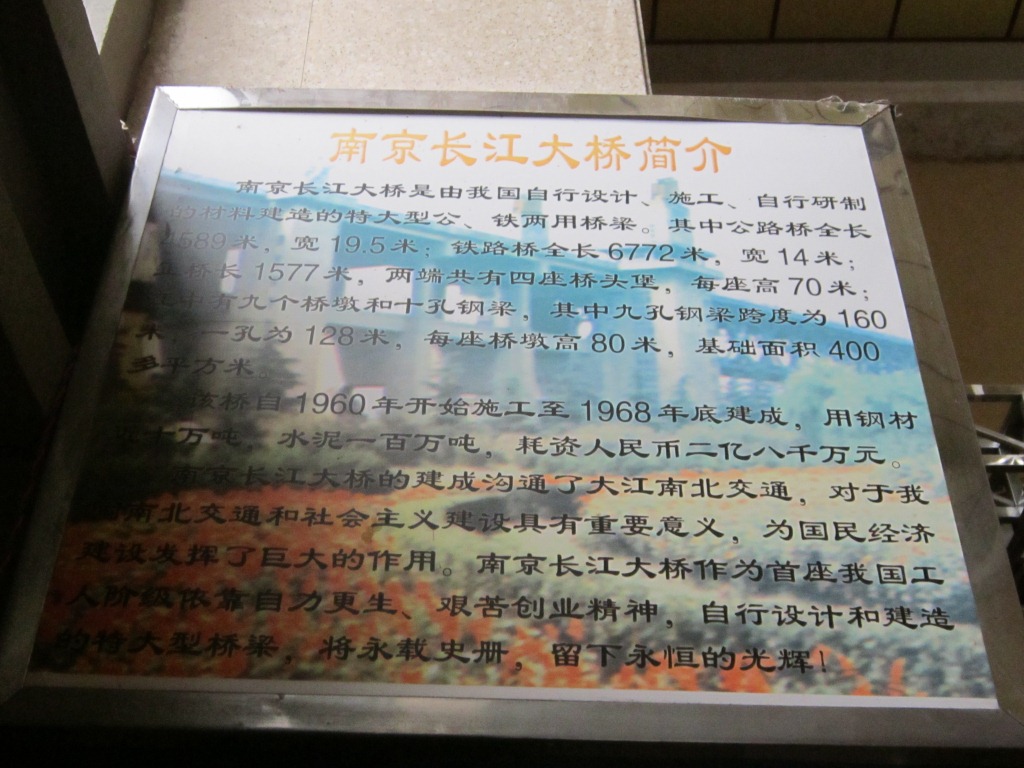 南京长江大桥简介
南京长江大桥是由我国自行设计、施工、自行研制
的材料建造的特大型公、铁两用桥梁。其中公路桥全长
4589米，宽19.5米；铁路桥全长6772米，宽14米；
正桥长1577米，两端共有四座桥头堡，每座高70米；
中有九个桥墩和十孔钢梁，其中九孔钢梁跨度为160
米，一孔为128米，每座桥墩高80米，基础面积400
多平方米。
该桥自1960年开始施工至1968年底建成，用钢材
十万吨，水泥一百万吨，耗资人民币二亿八千万元。
南京长江大桥的建成沟通了大江南北交通，对于我
国南北交通和社会主义建设具有重要意义，为国民经济
建设发挥了巨大的作用。南京长江大桥作为首座我国工
人阶级依靠自力更生、艰苦创业精神，自行设计和建造
的特大型桥梁，将永载史册，留下永恒的光辉！